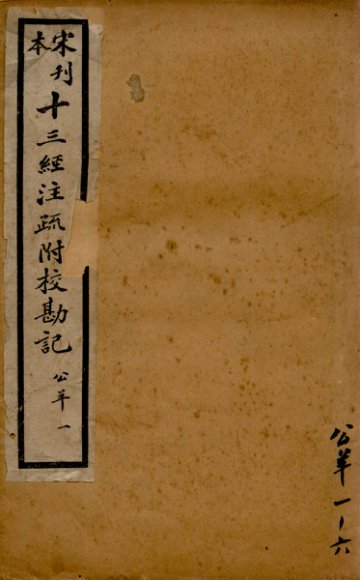 宋刊本十三經注疏附校勘記 公羊一
公羊 一-六